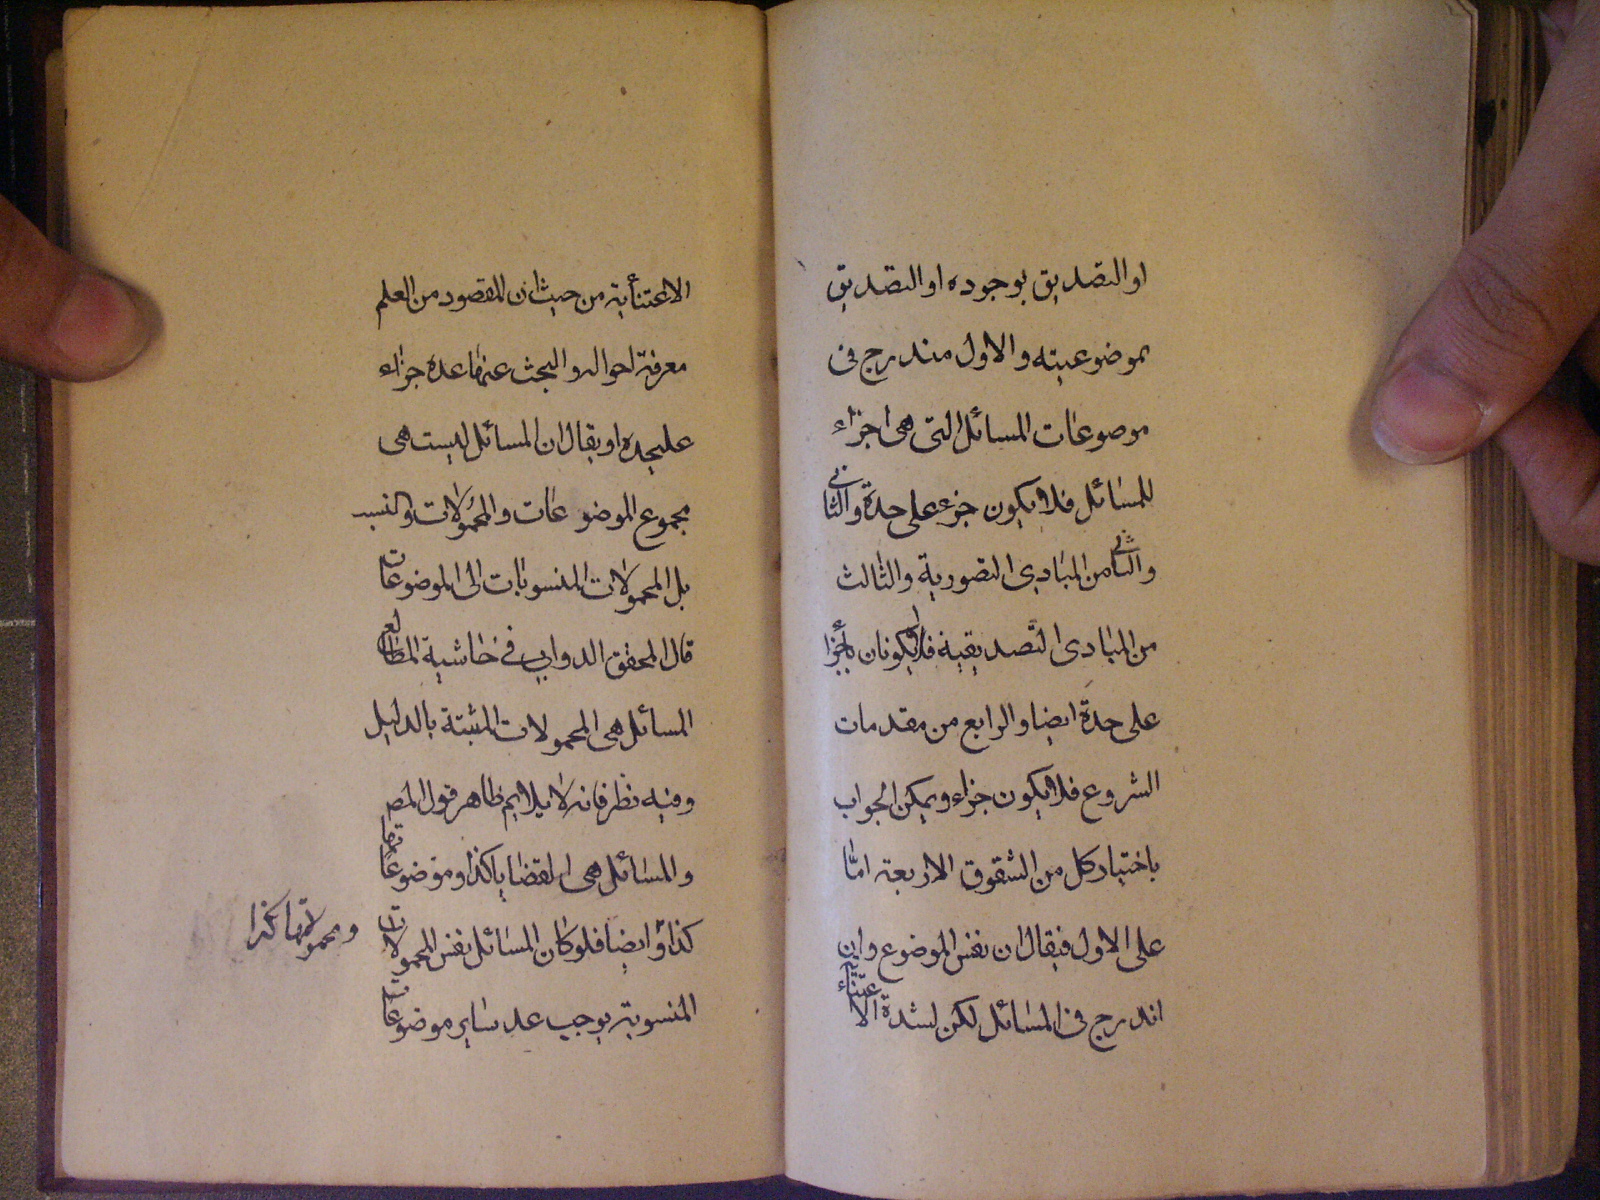 او التصديق بوجوده او التصديق
بموضوعيته والاول مندرج فى
موصوعات المسائل التى هى اجزاء
للمسائل فلا يكون جزء على حدة والثانى
والثانى من المبادى التصورية والثالث
من المبادى التصديقية فلا يكونان
على حدة ايضا والرابع من مقدمات
الشروع فلا يكون جزاء ويمكن الجواب
باختيار كل من الشقوق الاربعة امّا
على الاول فيقال ان نفس الموضوع وان
اندرج فى المسائل لكن لشدة الاعتناء به
الاعتنأية من حيث ان المقصود من العلم
معرفة احواله والبحث عنها عده جزاء
عليحده او يقال ان المسائل ليست هى
مجموع الموضوعات والمحمولات والنسب
بل المحمولات المنسوبات الى الموضوعات
قال المحقق الدوانى فى حاشية المطالع
المسائل هى المحمولات المثبتة بالدليل
وفيه نظر فانه لا يلايم ظاهر قول المص
والمسائل هى القضايا كذا وموضوعاتها
كذا وايضا فلو كان المسائل نفس المحمولات
ومحمولاتها كذا
المنسوبة يوجب عد ساير موضوعات